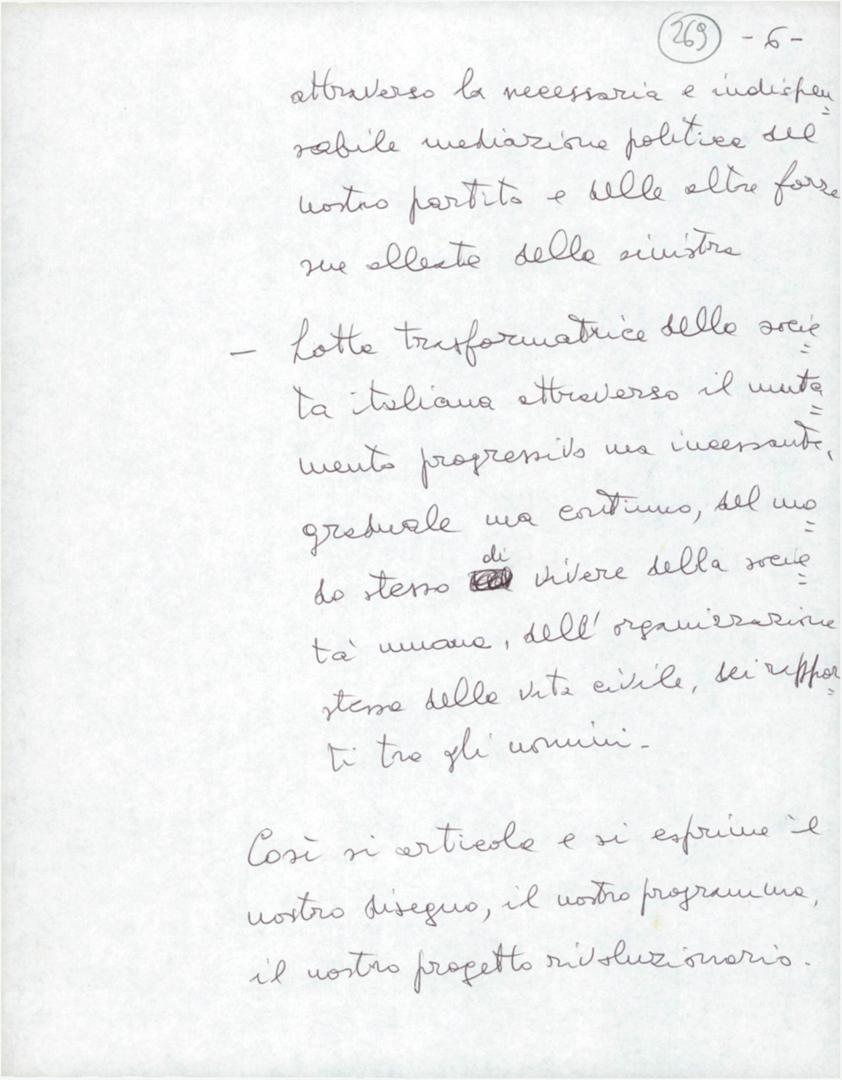 269 - 6 -
attraverso la necessaria e indispen=
sabile mediazione politica del
nostro partito e delle altre forze
sue alleate della sinistra
- Lotta trasformatrice della socie=
tà italiana attraverso il muta=
mento progressivo ma incessante,
graduale ma continuo, del mo=
do stesso di vivere della socie=
tà umana, dell'organizzazione
stessa della vita civile, dei rappor=
ti tra gli uomini -
Così si articola e si esprime il
nostro disegno, il nostro programma,
il nostro progetto rivoluzionario.